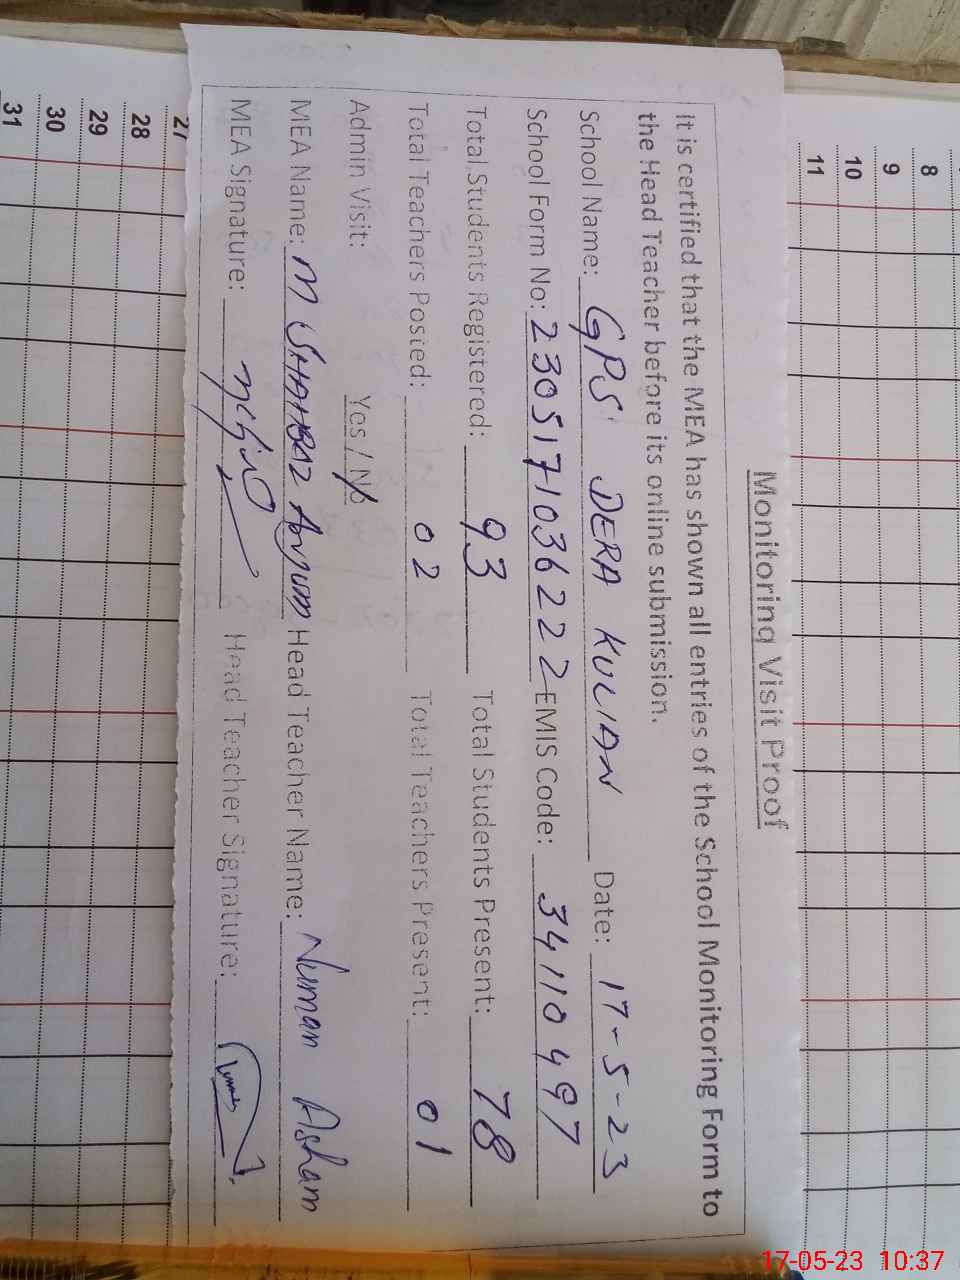 Monitoring Visit Proof
It is certified that the MEA has shown all entries of the School Monitoring Form to
the Head Teacher before its online submission.
School Name: GPS DERA KULIAN Date: 17-5-23
School Form No: 230517103622 2 EMIS Code: 34110497
Total Students Registered: 93 Total Students Present: 78
Total Teachers Posted: 02 Total Teachers Present: 01
Admin Visit: Yes / No
MEA Name: M SHAHBAZ Anjum Head Teacher Name: Numan Asham
MEA Signature: Head Teacher Signature:
8
9
10
11
27
28
29
30
31
17-05-23 10:37